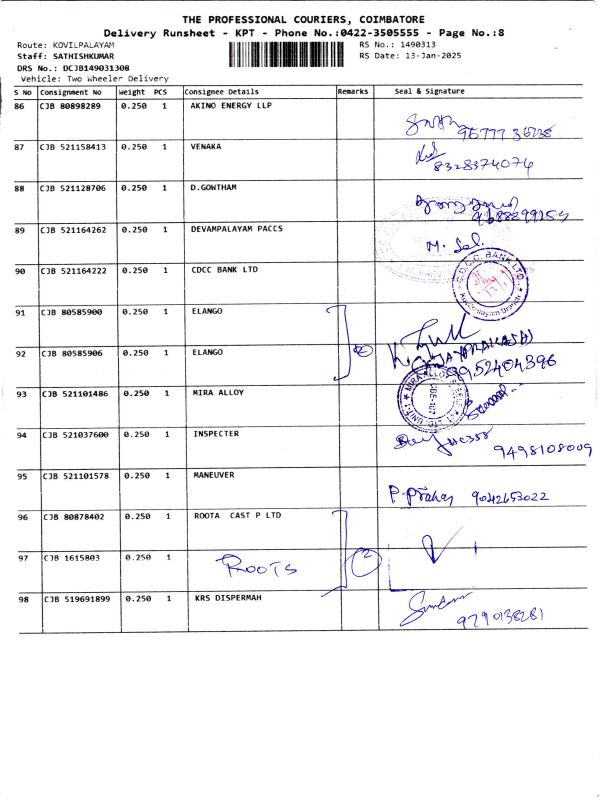 THE PROFESSIONAL COURIERS, COIMBATORE
Delivery Runsheet - KPT - Phone No.:0422-3505555 - Page No.:8
Route: KOVILPALAYAM RS No.: 1490313
Staff: SATHISHKUMAR RS Date: 13-Jan-2025
DRS No.: DCJB149031308
Vehicle: Two Wheeler Delivery
S No Consignment No Weight PCS Consignee Details Remarks Seal & Signature
86 CJB 80898289 0.250 1 AKINO ENERGY LLP
87 CJB 521158413 0.250 1 VENAKA
8328374074
88 CJB 521128706 0.250 1 D.GOWTHAM
89 CJB 521164262 0.250 1 DEVAMPALAYAM PACCS
M. Sel.
90 CJB 521164222 0.250 1 CDCC BANK LTD
C.D.C.C. BANK LTD.
91 CJB 80585900 0.250 1 ELANGO
92 CJB 80585906 0.250 1 ELANGO 2
9952404396
93 CJB 521101486 0.250 1 MIRA ALLOY
94 CJB 521037600 0.250 1 INSPECTER
9498108009
95 CJB 521101578 0.250 1 MANEUVER
9042653022
96 CJB 80878402 0.250 1 ROOTA CAST P LTD
97 CJB 1615803 0.250 1 ROOTS 2
98 CJB 519691899 0.250 1 KRS DISPERMAH
9790138281